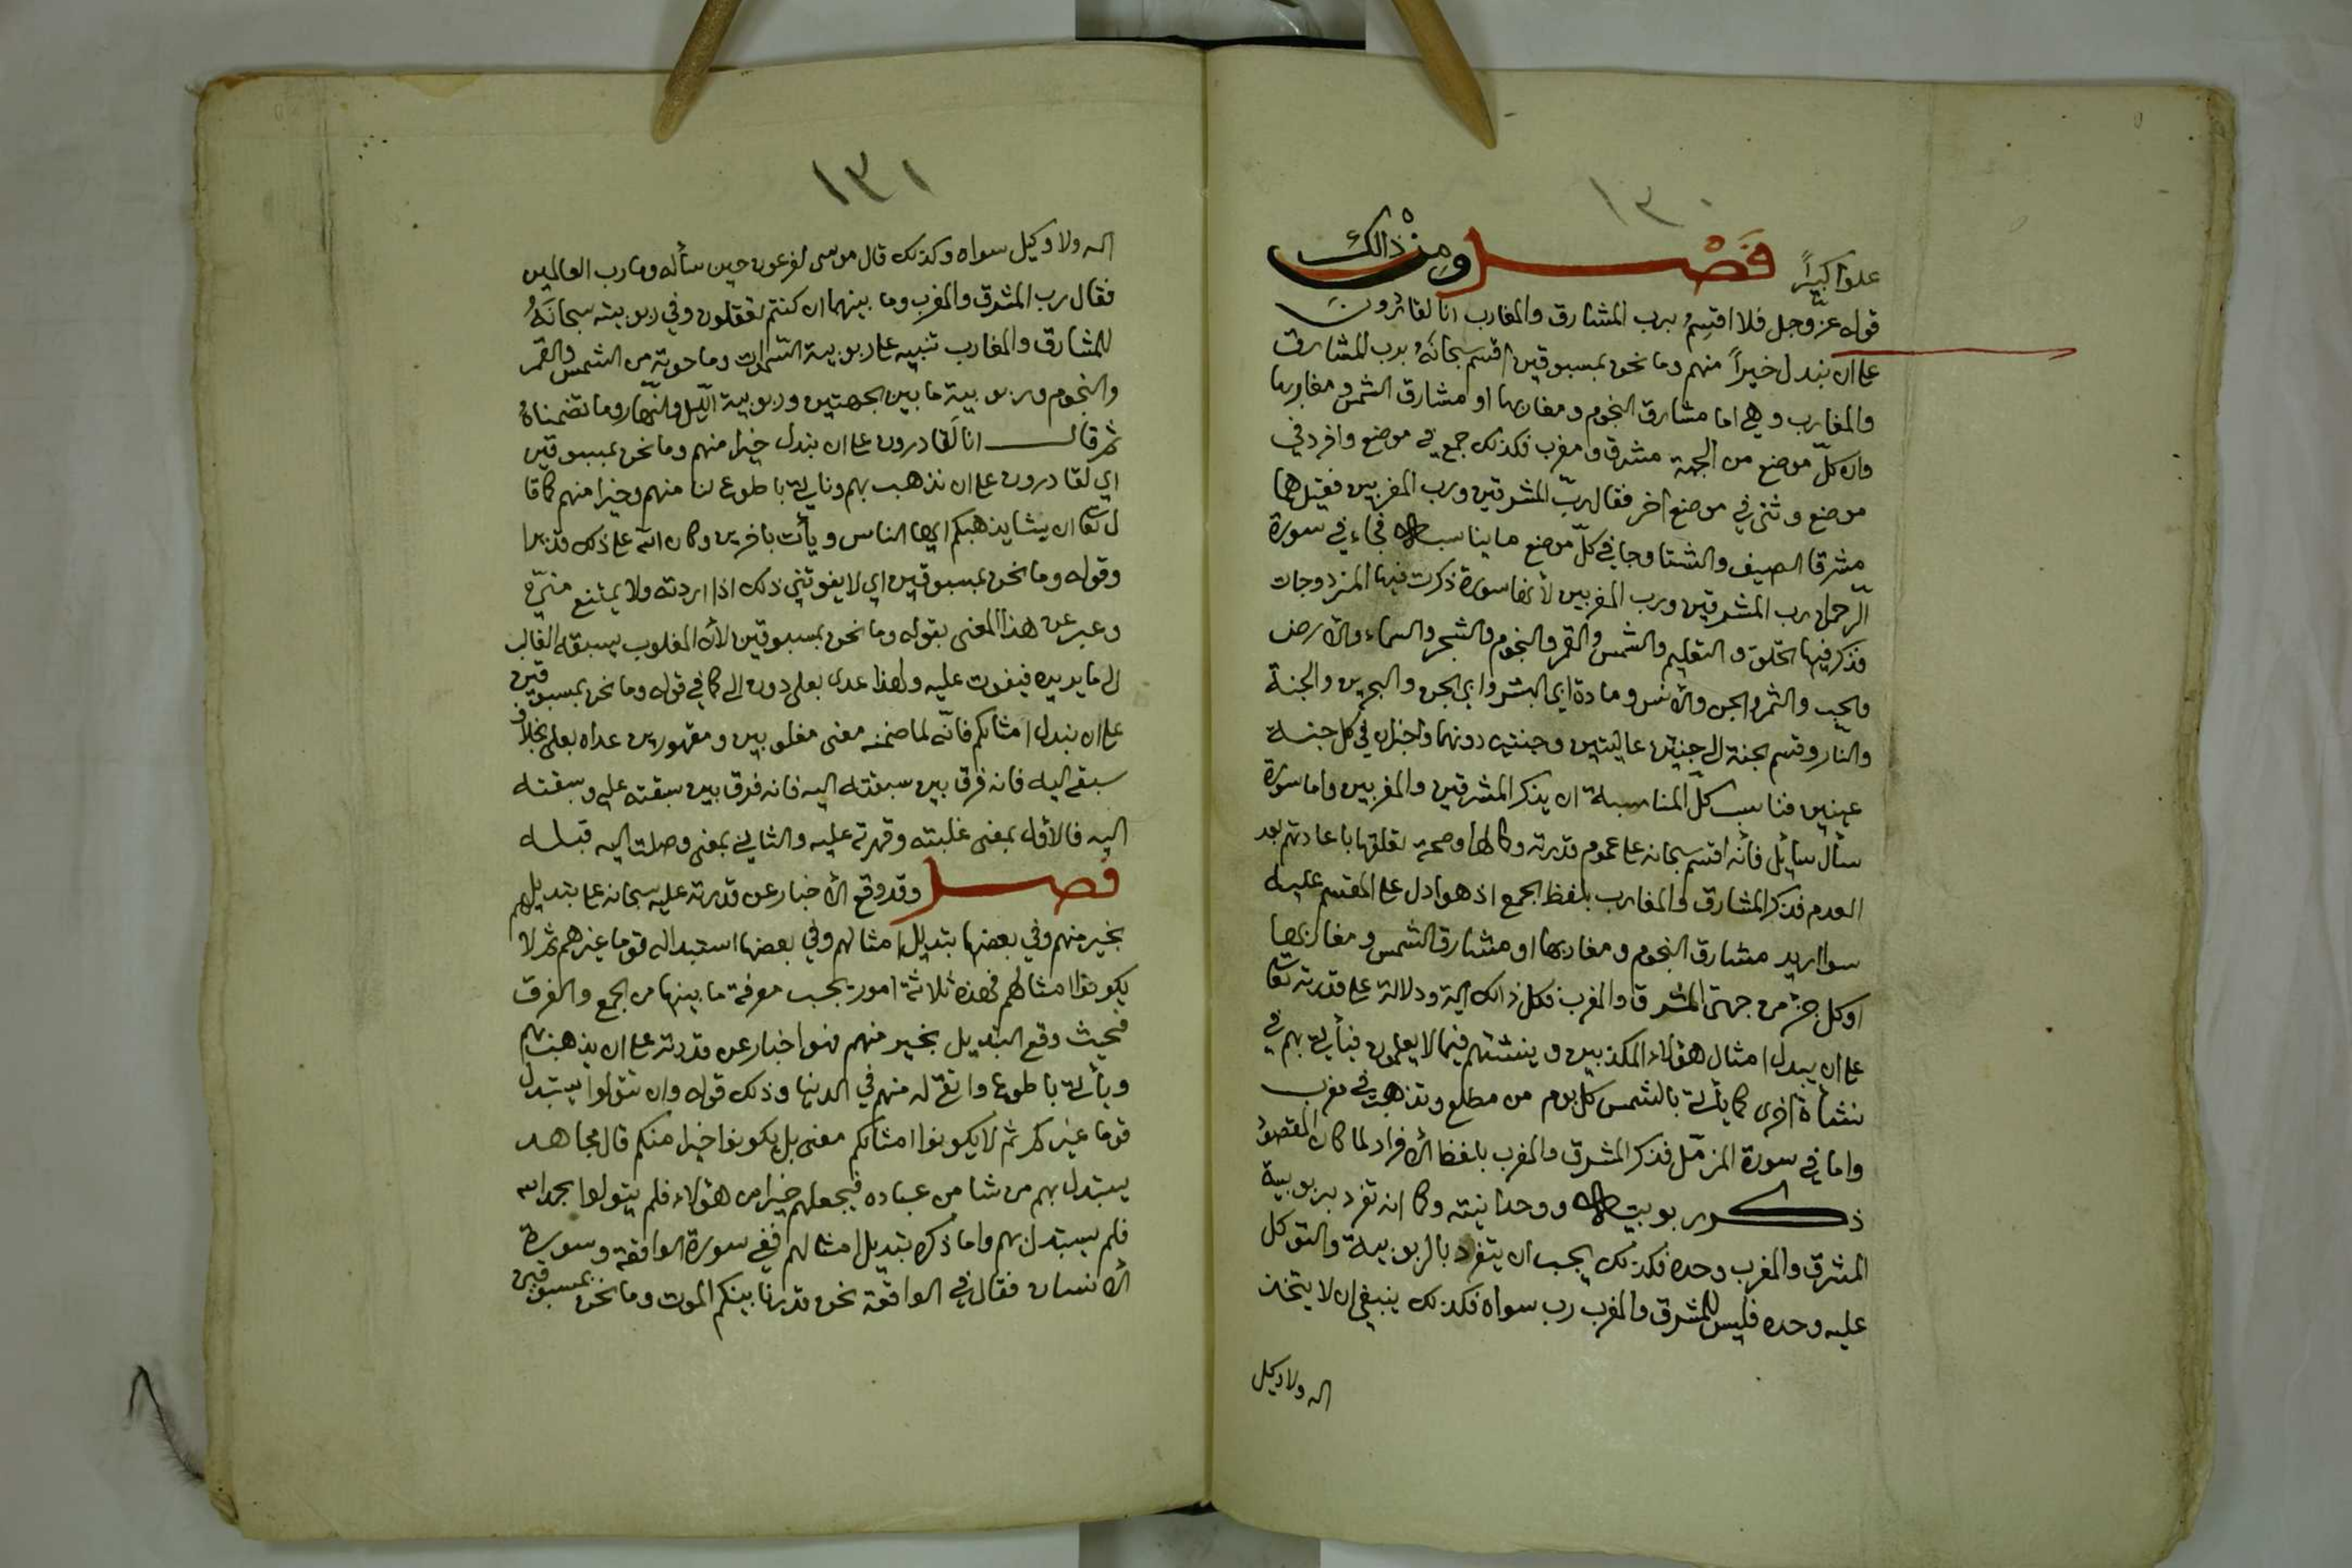 ١٣٠
علوا كبيراً فَصْل ومِنْ ذالك
قوله عزّ وجل فلا اقسِمُ برب المشارق والمغارب انا لقادرون
على ان نبدل خيراً منهم وما نحن بمسبوقين اقسم سبحانَهُ برب المشارق
والمغارب وهي اما مشارق النجوم ومغاربها او مشارق الشمس ومغاربها
وان كلّ موضع من الجهة مشرق ومغرب فكذلك جمع في موضع وافرد في
موضع وثنى في موضع آخر فقال ربّ المشرقين ورب المغربين فقيل هما
مشرقا الصيف والشتا وجا في كلّ موضع ما يناسبه فجاء في سورة
الرّحمن رب المشرقين ورب المغربين لأنها سورة ذكرت فيها المزدوجات
فذكر فيها الخلق والتعليم والشمس والقمر والنجوم والشجر والسماء والارض
والحب والثمر والجن والانس ومادة ابي البشر وابي الجن والبحرين والجنة
والنار وقسم الجنة الى جنتين عاليتين وجنتين دونهما واخبر ان في كل جنة
عينين فناسب كلّ المناسبة ان يذكر المشرقين والمغربين واما سورة
سأل سائل فانّه اقسم سبحانه على عموم قدرته وكمالها وصحة تعلقها باعادتهم بعد
العدم فذكر المشارق والمغارب بلفظ الجمع اذ هو ادل على المقسم عليه
سوا اريد مشارق النجوم ومغاربها او مشارق الشمس ومغاربها
او كل جزء من جهتى المشرق والمغرب فكل ذالك آية ودلالة على قدرته تعا
على ان يبدل امثال هؤلاء المكذبين وينشئهم فيما لا يعلمون فيأتي بهم في
نشأة اخرى كما يأتي بالشمس كل يوم من مطلع وتذهب في مغرب
واما في سورة المزمّل فذكر المشرق والمغرب بلفظ الافراد لما كان المقصود
ذكر ربوبيته ووحدانيته وكما انه تفرد بربوبية
المشرق والمغرب وحده فكذلك يجب ان يتفرد بالربوبية والتوكل
عليه وحده فليس للمشرق والمغرب رب سواه فكذلك ينبغي ان لا يتخذ
اله ولا وكيل
١٣١
اله ولا وكيل سواه وكذلك قال موسى لفرعون حين سأله وما رب العالمين
فقال رب المشرق والمغرب وما بينهما ان كنتم تعقلون وفي ربوبيته سبحانَهُ
للمشارق والمغارب تنبيه على ربوبية السّموات وما حوته من الشمس والقمر
والنجوم وربوبية ما بين الجهتين وربوبية الّليل والنّهار وما تضمناهُ
ثم قال انا لَقادرون على ان نبدل خيرا منهم وما نحن بمسبوقين
اي لقادرون على ان نذهب بهم ونأتي باطوع لنا منهم وخيرا منهم كما قا
ل تعا ان يشا يذهبكم ايها الناس ويأت باخرين وكان الله على ذلك قديرا
وقوله وما نحن بمسبوقين اي لا يفوتني ذلك اذا اردته ولا يمتنع منّي
وعبر عن هذا المعنى بقوله وما نحن بمسبوقين لأن المغلوب يسبقه الغالب
الى ما يريده فيفوت عليه ولهذا عدى بعلى دون الى كما في قوله وما نحن بمسبوقين
على ان نبدل امثالكم فانّه لما ضمنه معنى مغلوبين ومقهورين عداه بعلى بخلاف
سبقه اليه فانه فرق بين سبقته اليه فانه فرق بين سبقته عليه وسبقته
اليه فالأول بمعنى غلبته وقهرته عليه والثاني بمعنى وصلت اليه قبله
فصل وقد وقع الاخبار عن قدرته عليه سبحانه على تبديلهم
بخير منهم وفي بعضها تبديل امثالهم وفي بعضها استبداله قوما غيرهم ثم لا
يكونوا امثالهم فهذه ثلاثة امور يجب معرفة ما بينها من الجمع والفرق
فحيث وقع التبديل بخير منهم فهو اخبار عن قدرته على ان يذهب بهم
ويأتي باطوع واتقى له منهم في الدنيا وذلك قوله وان تتولوا يستبدل
قوما غيركم ثم لا يكونوا امثالكم معنى بل يكونوا خيرا منكم قال مجاهد
يستبدل بهم من شا من عباده فيجعلهم خيرا من هؤلاء فلم يتولوا بحمد الله
فلم يستبدل بهم واما ذكره تبديل امثالهم ففي سورة الواقعة وسورة
الانسان فقال في الواقعة نحن قدرنا بينكم الموت وما نحن بمسبوقين